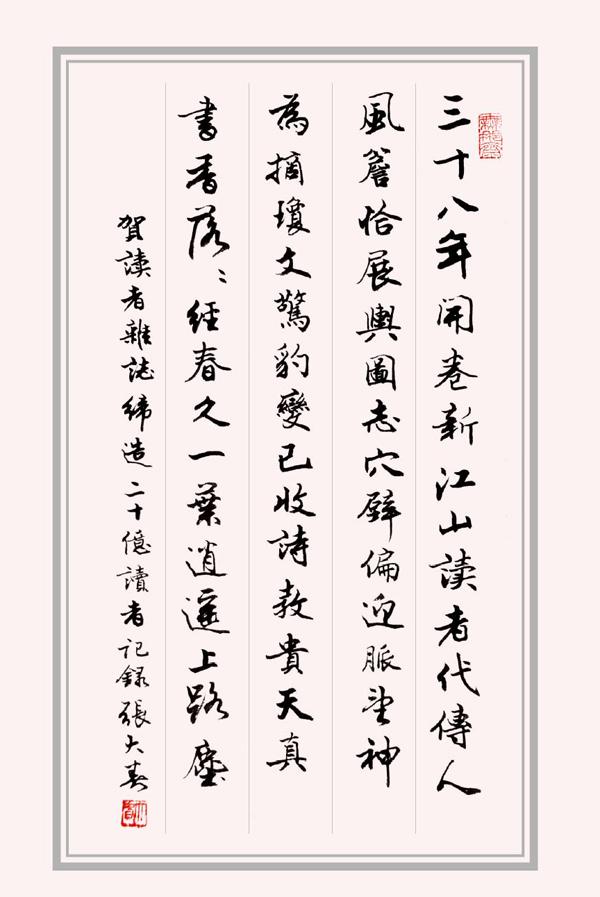 三十八年開卷新江山讀者代傳人
風簷恰展輿圖志穴壁偏迎脈望神
為摘瓊文驚豹變已收詩教貴天真
書香落〻經春久一葉逍遙上路塵
賀讀者雜誌締造二十億讀者記錄張大春